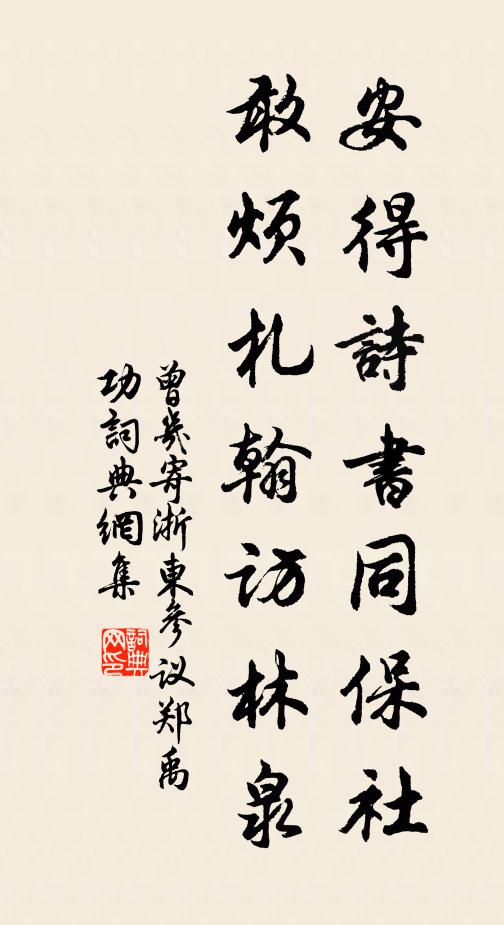 安得詩書同保社
敢煩札翰訪林泉
曾幾寄浙東參议郑禹
功詞典網集
詞典网印